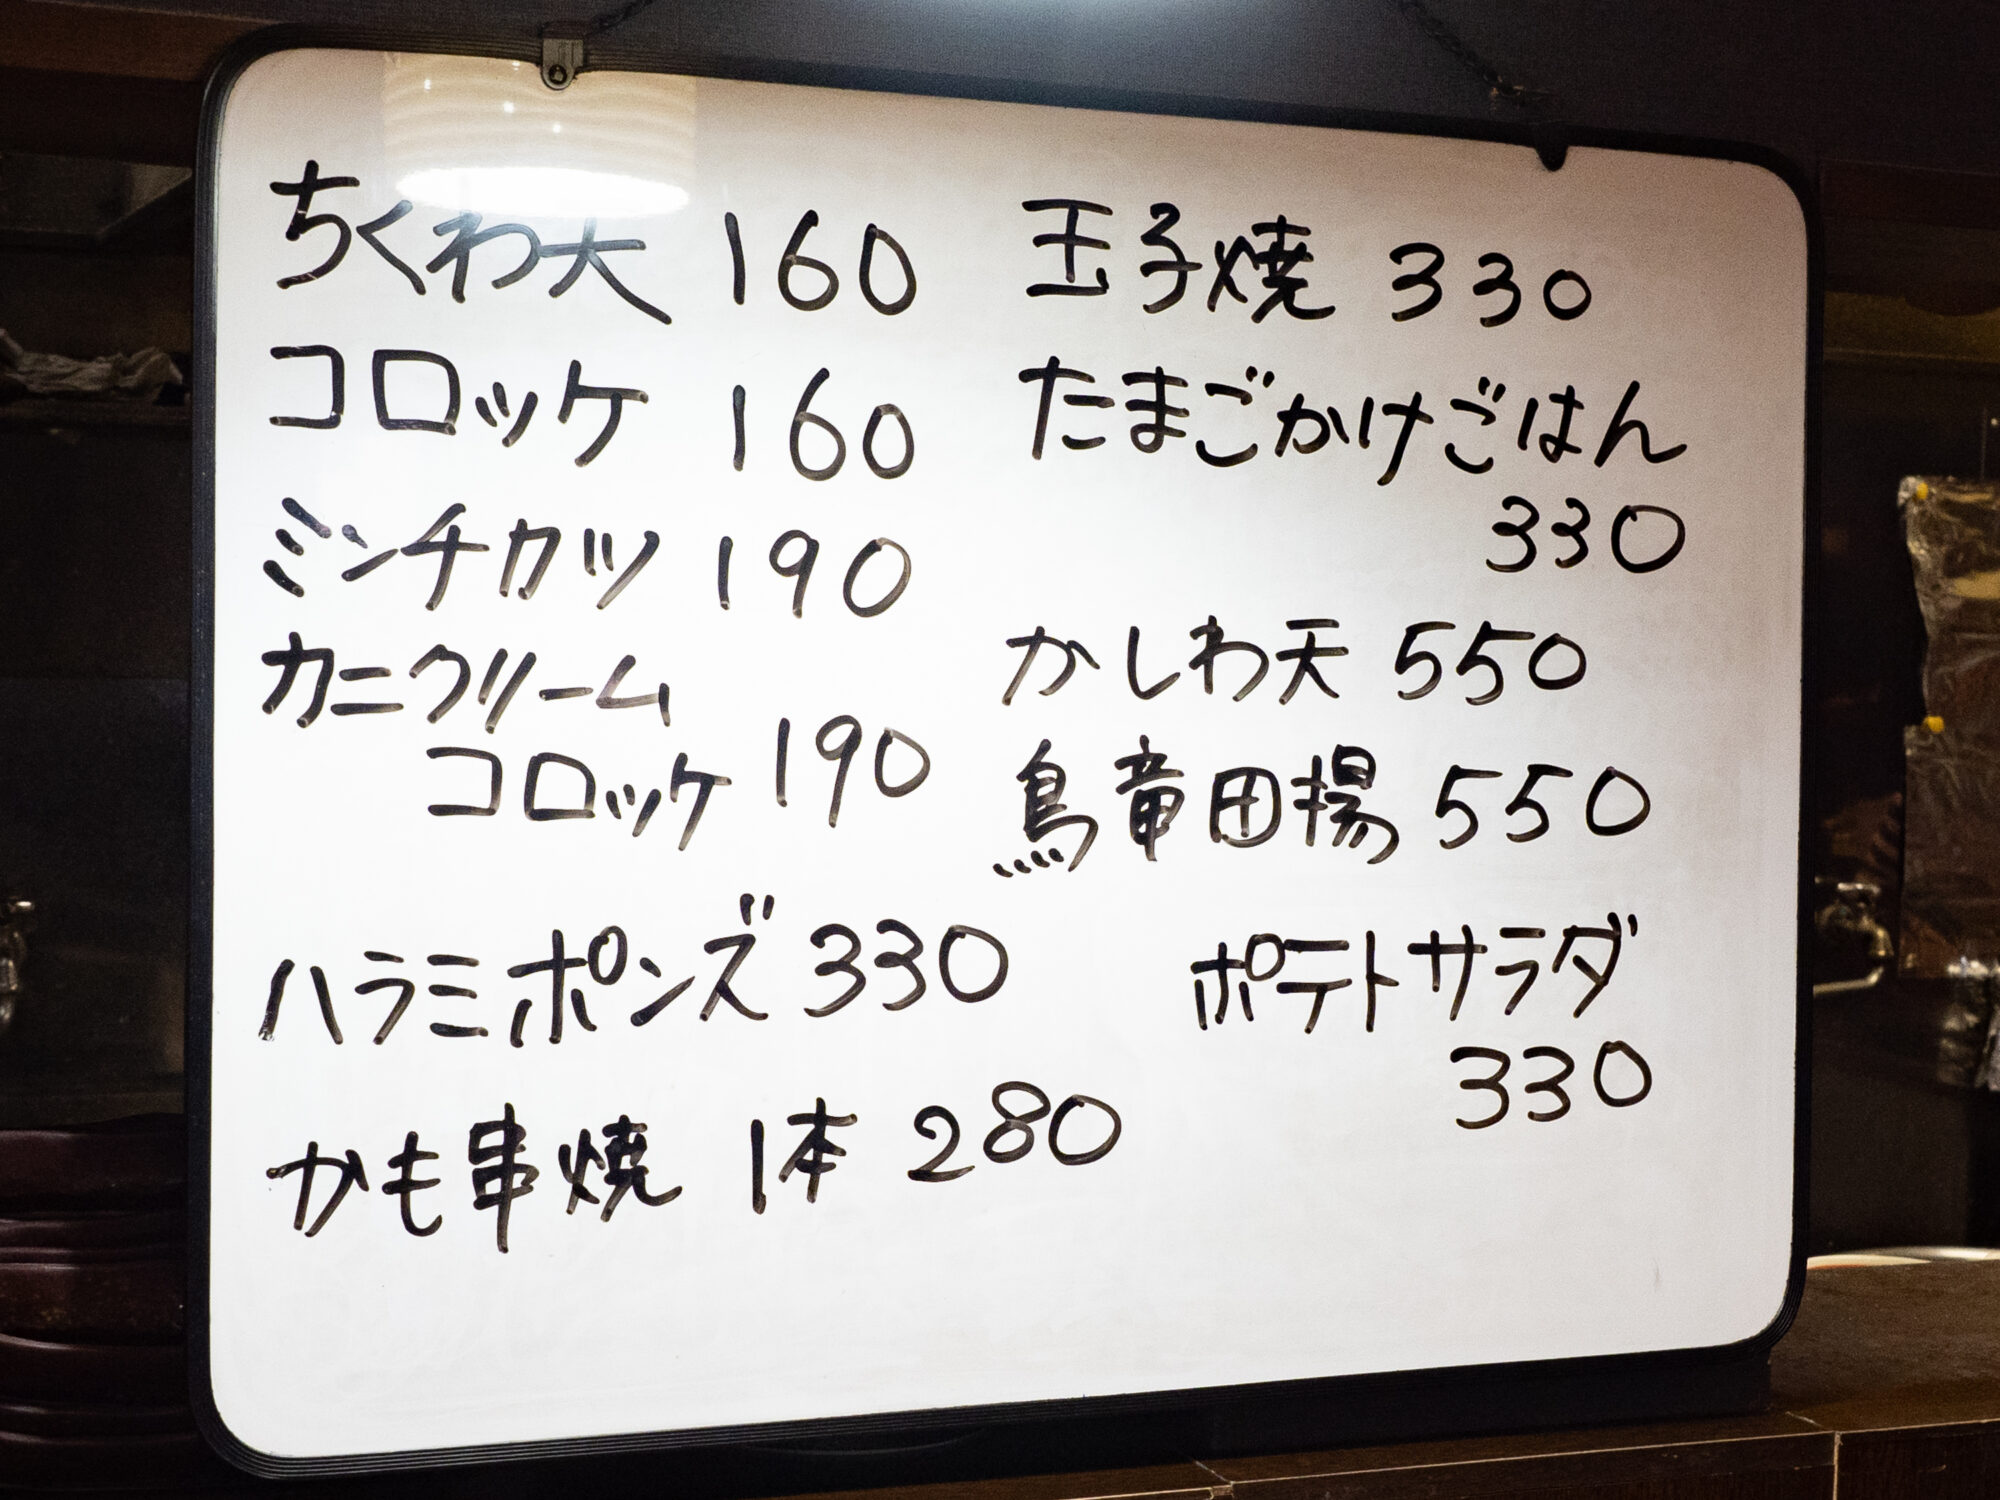 ちくわ天 160
コロッケ 160
ミンチカツ 190
カニクリーム
コロッケ 190
ハラミポンズ 330
かも串焼 1本 280
玉子焼 330
たまごかけごはん
330
かしわ天 550
鳥竜田揚 550
ポテトサラダ
330